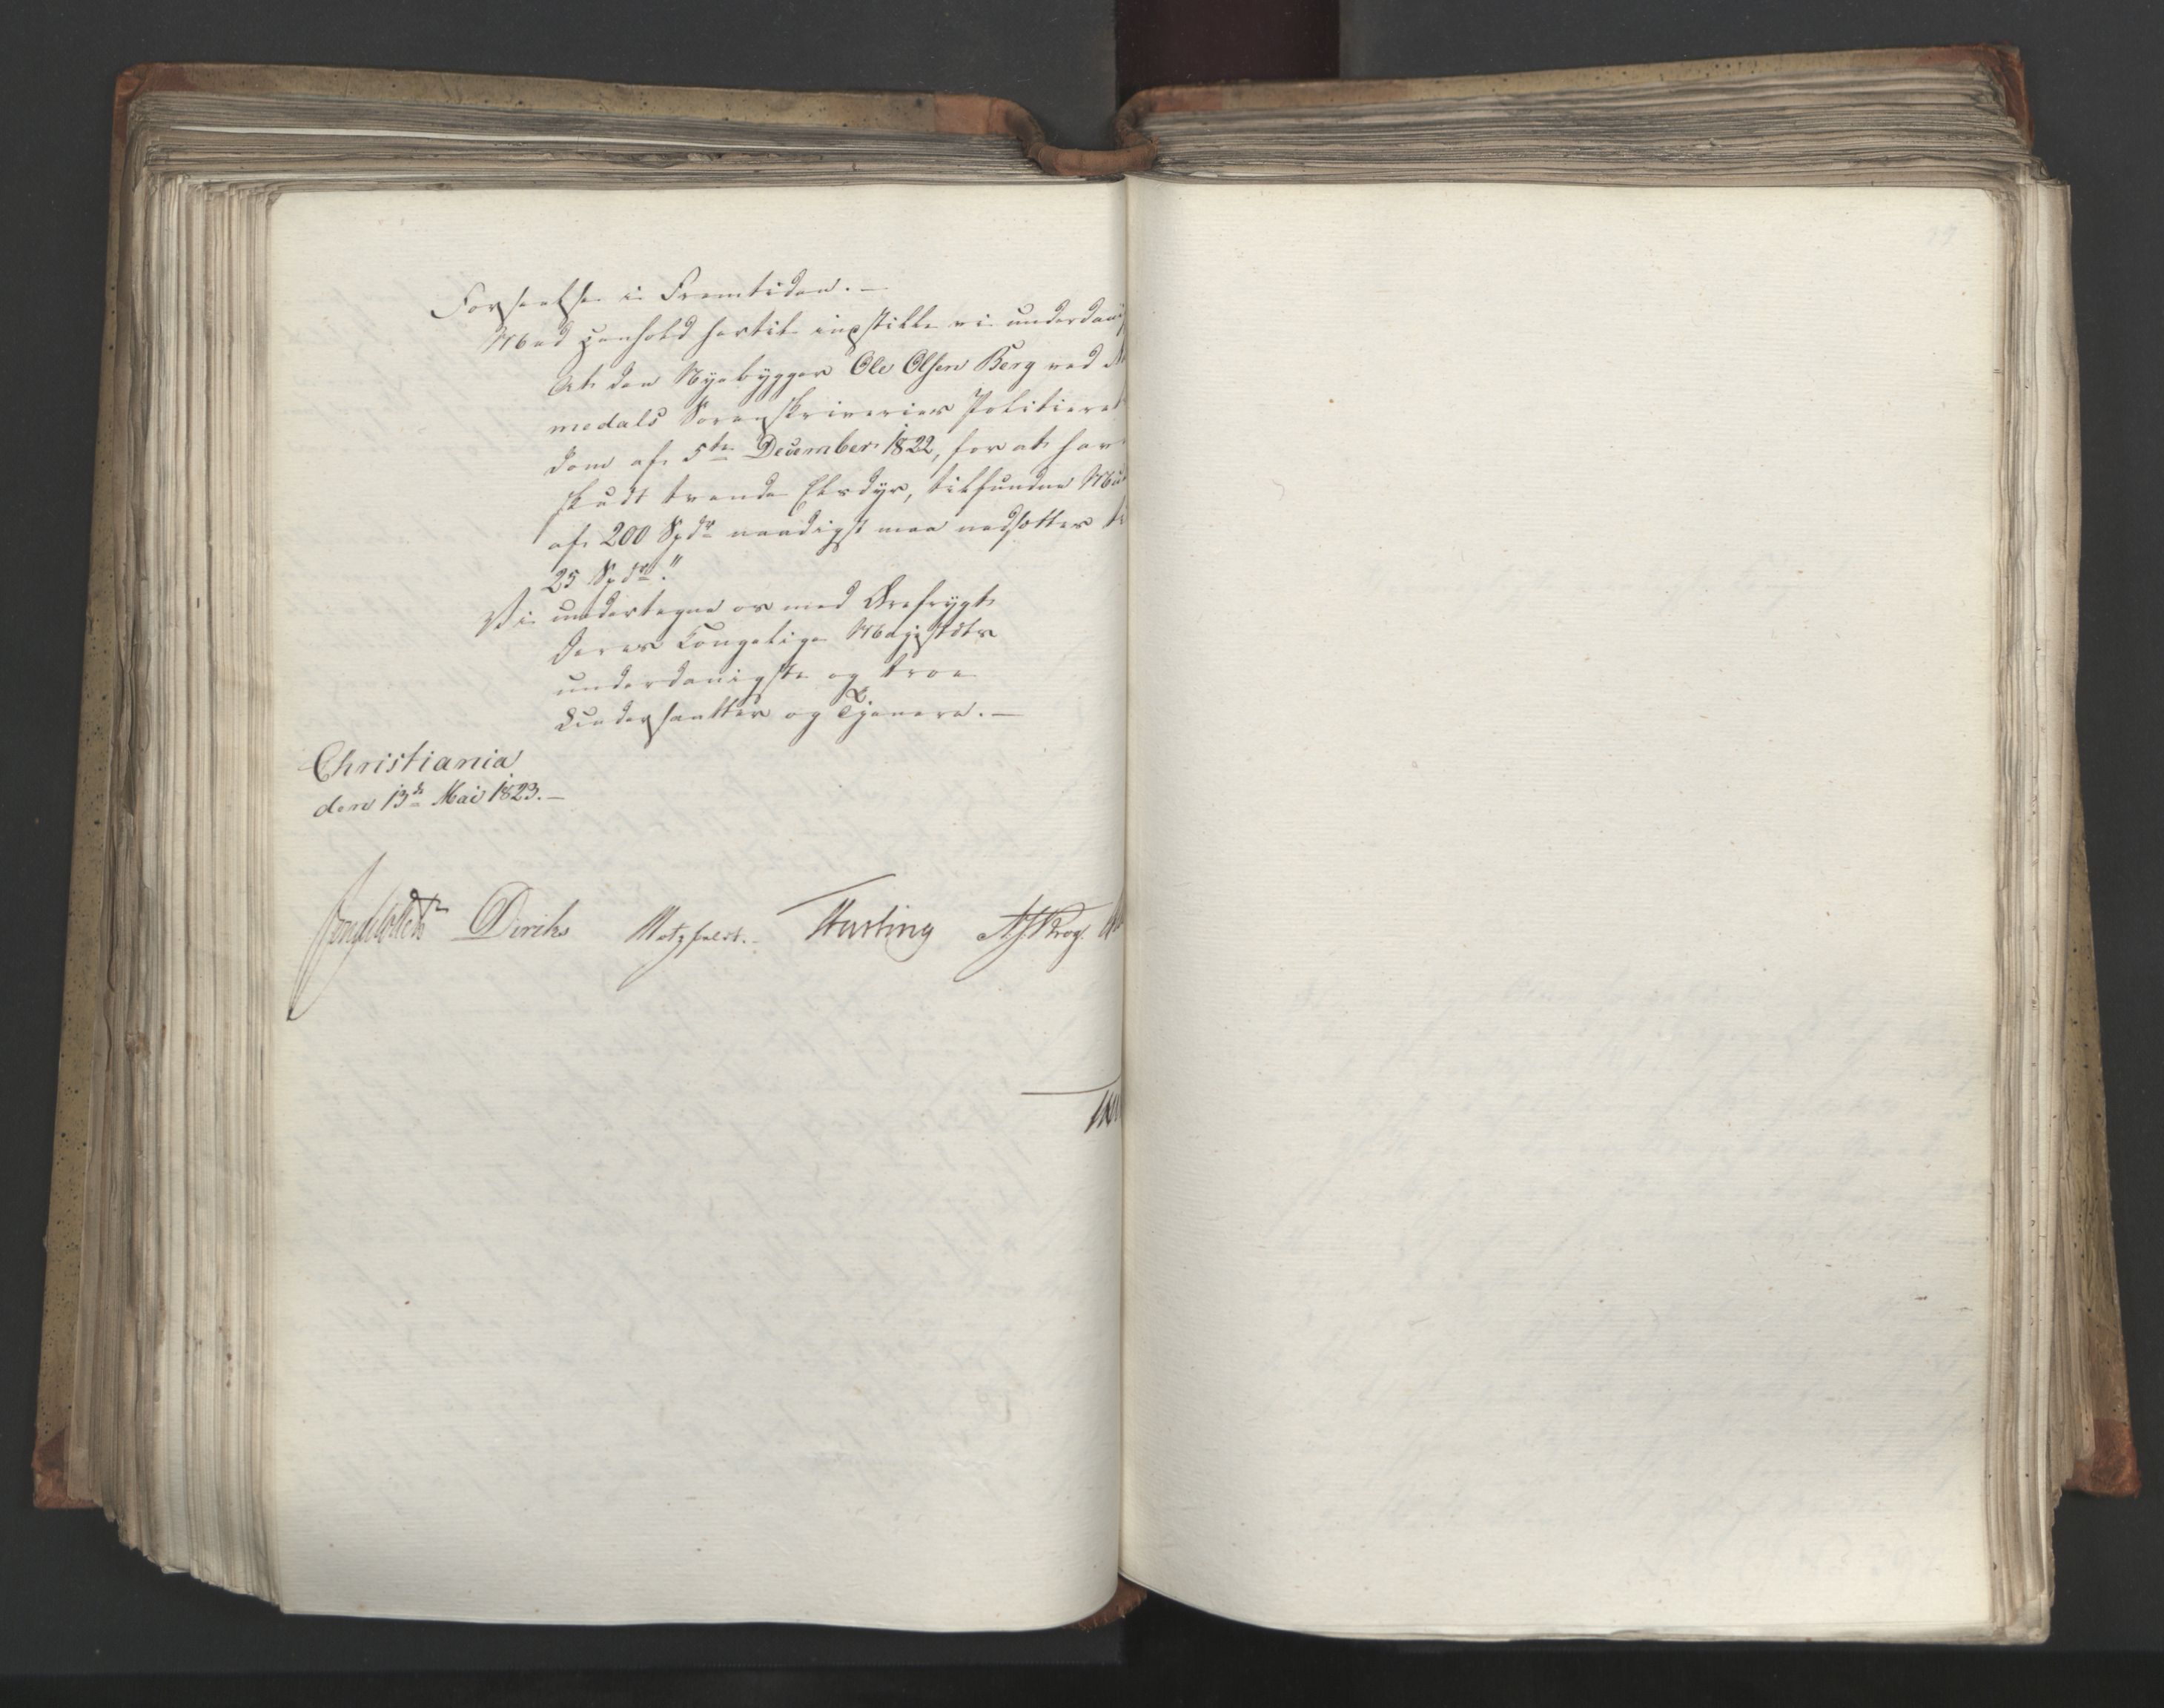 Forseelse i Fremtiden. —
Med Henhold hertil indstille vi underdan
At den Nyebygger Ole Olsen Berg ved
medals Sorenskriveries Politieret
Dom af 5te December 1822, for at hav
skudt trende Elsdyr, tilfundne Mul
af 200 Spdr naadigst maa nedsættes ti
25 Spdr."
Vi undertegne os med Ærefrygt
Deres Kongelige Majestæts
underdanigste og troe
Undersaatter og Tjenere. —
Christiania
den 13de Mai 1823. —
Diriks Motzfeldt. Fasting